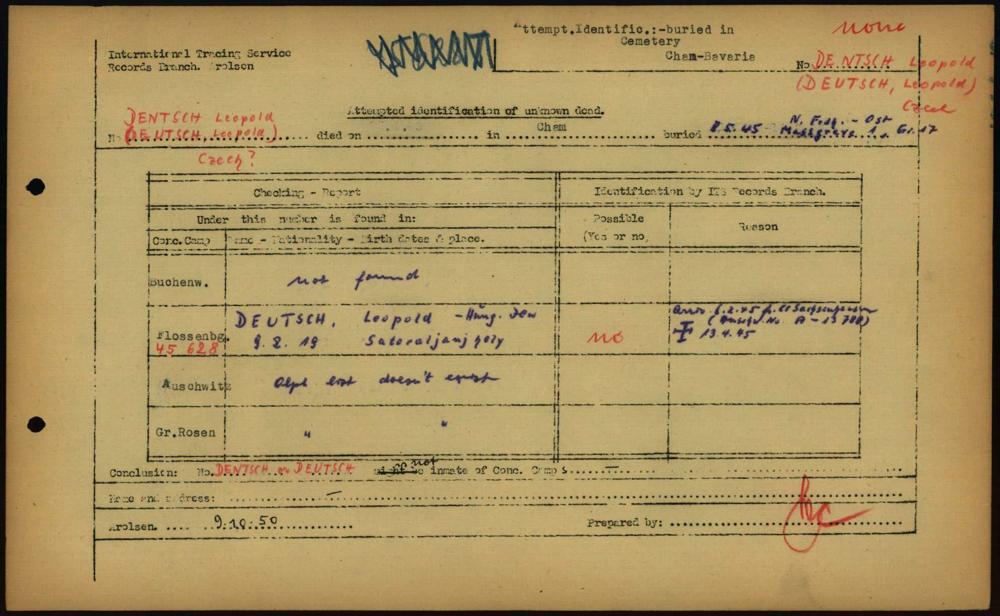 Attempt.Identific.:-buried in
Cemetery
Cham-Bavaria
none
International Tracing Service
Records Branch. Arolsen
No. DENTSCH Leopold
(DEUTSCH, Leopold)
Czech
Attempted identification of unknown dead.
DENTSCH Leopold
No. (DEUTSCH, Leopold) died on ........ in Cham buried 8.5.45 N. Frdh. - Ost
Massgrave 1, Gr. 17
Czech?
Checking - Report
Identification by ITS Records Branch.
Under this number is found in:
Possible
(Yes or no)
Reason
Conc.Camp
Name - Nationality - Birth dates & place.
Buchenw.
not found
Flossenbg.
45 628
DEUTSCH, Leopold - Hung. Jew
9.2.19 Satoraljaujhely
no
6.2.45
(Auschw. No. A-13788)
13.4.45
Auschwitz
Alph list doesn't exist
Gr.Rosen
" "
Conclusion: No. DENTSCH or DEUTSCH not inmate of Conc. Camps .... —
Name and address: —
Arolsen. .... 9.10.50
Prepared by: